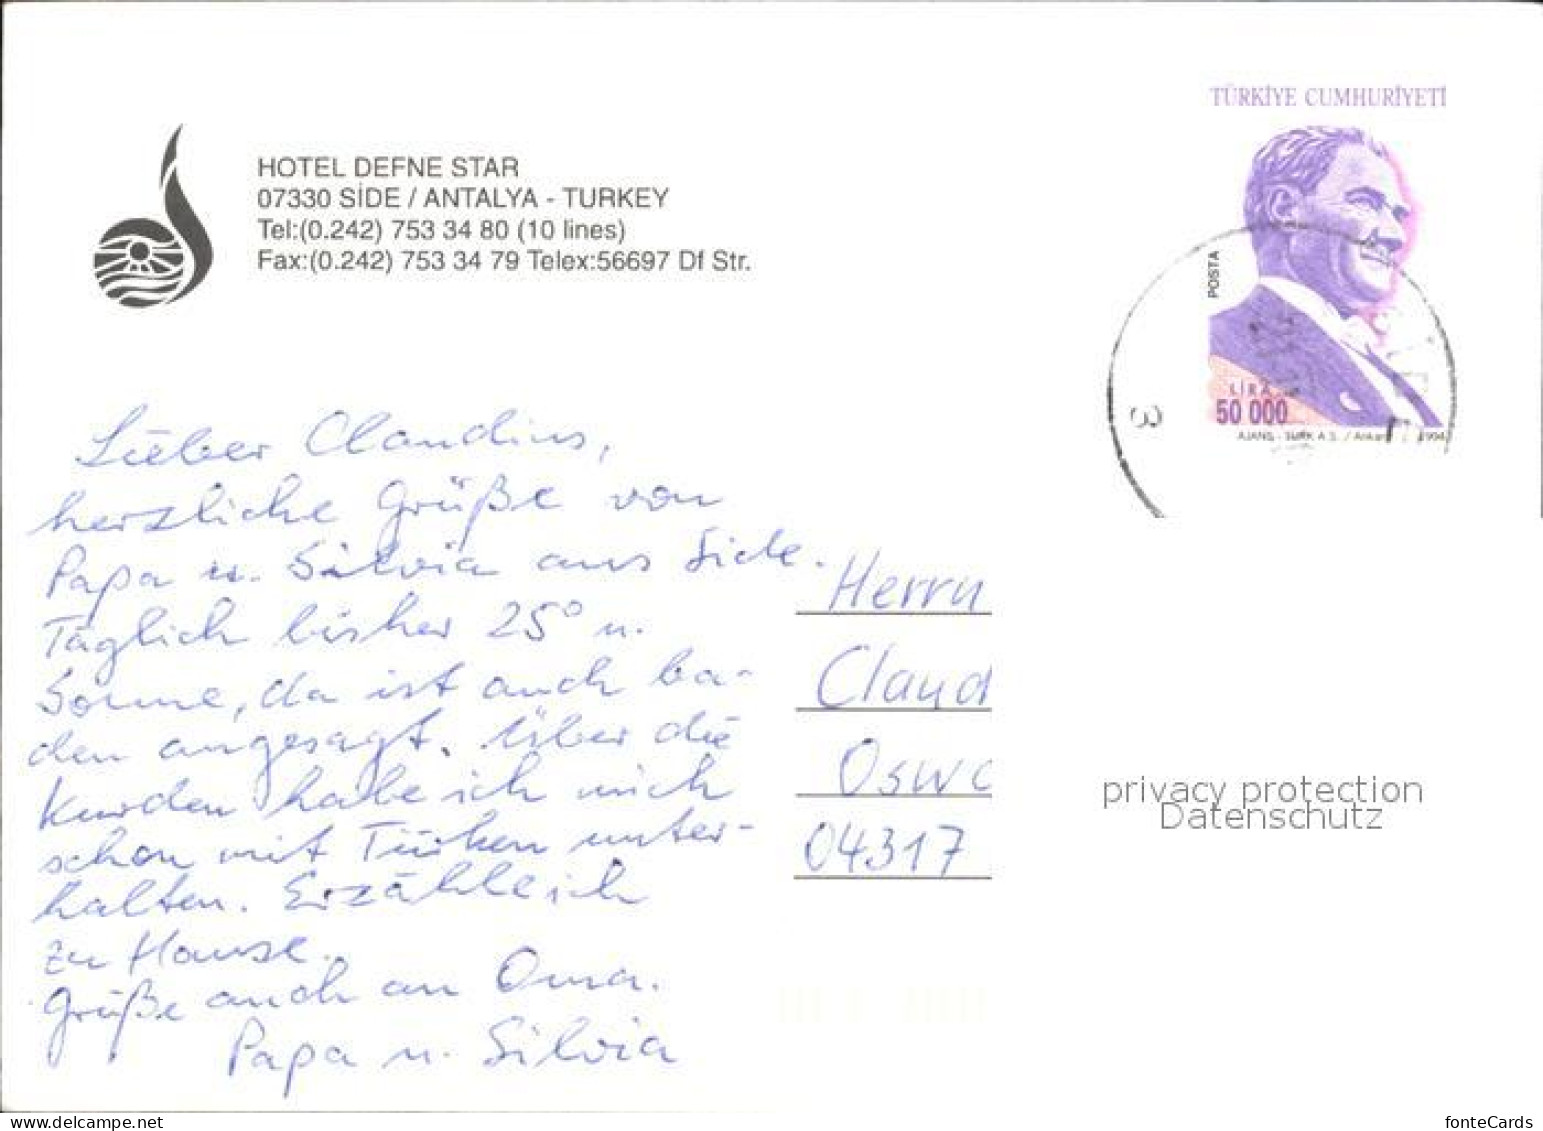 TÜRKİYE CUMHURİYETİ
HOTEL DEFNE STAR
07330 SİDE / ANTALYA - TURKEY
Tel:(0.242) 753 34 80 (10 lines)
Fax:(0.242) 753 34 79 Telex:56697 Df Str.
POSTA
LİRA
50 000
AJANS - TÜRK A.Ş. / Ankara 1994
3
Lieber Claudius,
herzliche Grüße von
Papa u. Silvia aus Side.
Täglich bisher 25° u.
Sonne, da ist auch ba-
den angesagt. Über die
Kurden habe ich mich
schon mit Türken unter-
halten. Erzähle ich
zu Hause.
Grüße auch an Oma.
Papa u. Silvia
Herrn
Claud
Oswa
04317
privacy protection
Datenschutz
delcampe.net
fonteCards